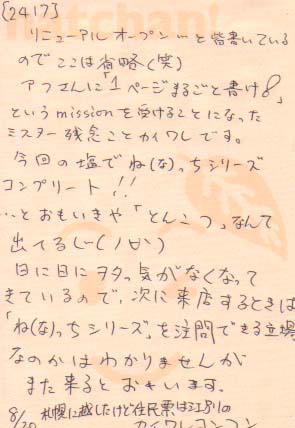 [2417]
リニューアルオープン…と皆書いている
のでここは省略(笑)
アフさんに「1ページまるごと書け8」
というmissionを受けることになった
ミスター残念ことカイワレです。
今回の塩でね(な)っちシリーズ
コンプリート!!
…とおもいきや「とんこつ」なんて
出てるし(ノ∀`)
日に日にヲタっ気がなくなって
きているので、次に来店するときは
「ね(な)っちシリーズ」を注問できる立場
なのかはわかりませんが
また来るとおもいます。
8/20 札幌に越したけど住民票は江別の
カイワレ